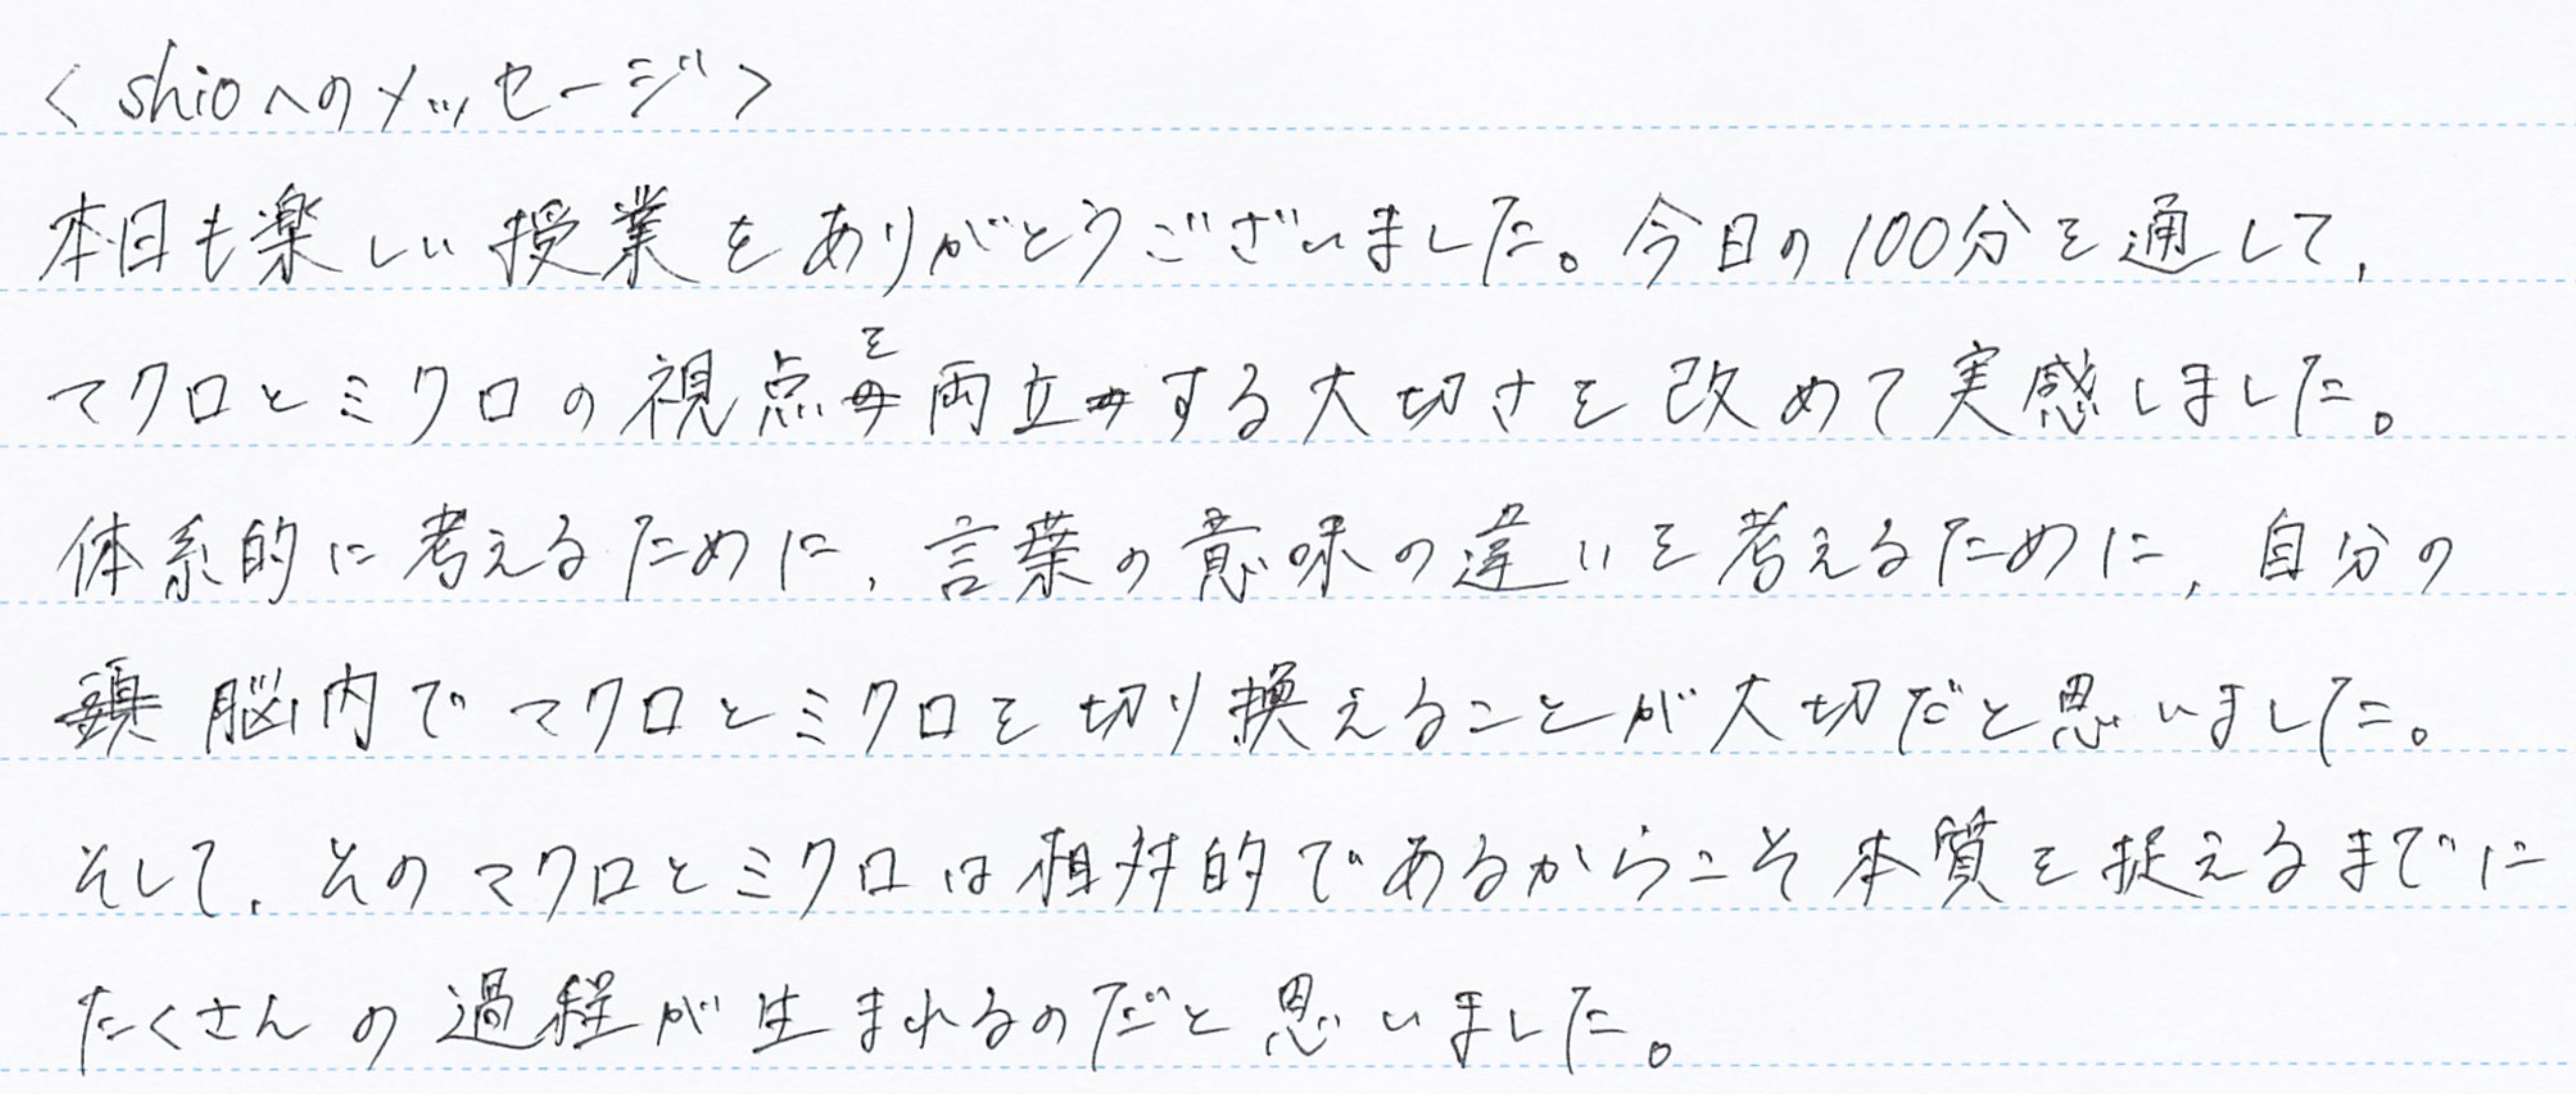 ＜shioへのメッセージ＞
本日も楽しい授業をありがとうございました。今日の100分を通して,
マクロとミクロの視点を両立する大切さを改めて実感しました。
体系的に考えるために, 言葉の意味の違いを考えるために, 自分の
脳内でマクロとミクロを切り換えることが大切だと思いました。
そして, そのマクロとミクロは相対的であるからこそ本質を捉えるまでに
たくさんの過程が生まれるのだと思いました。